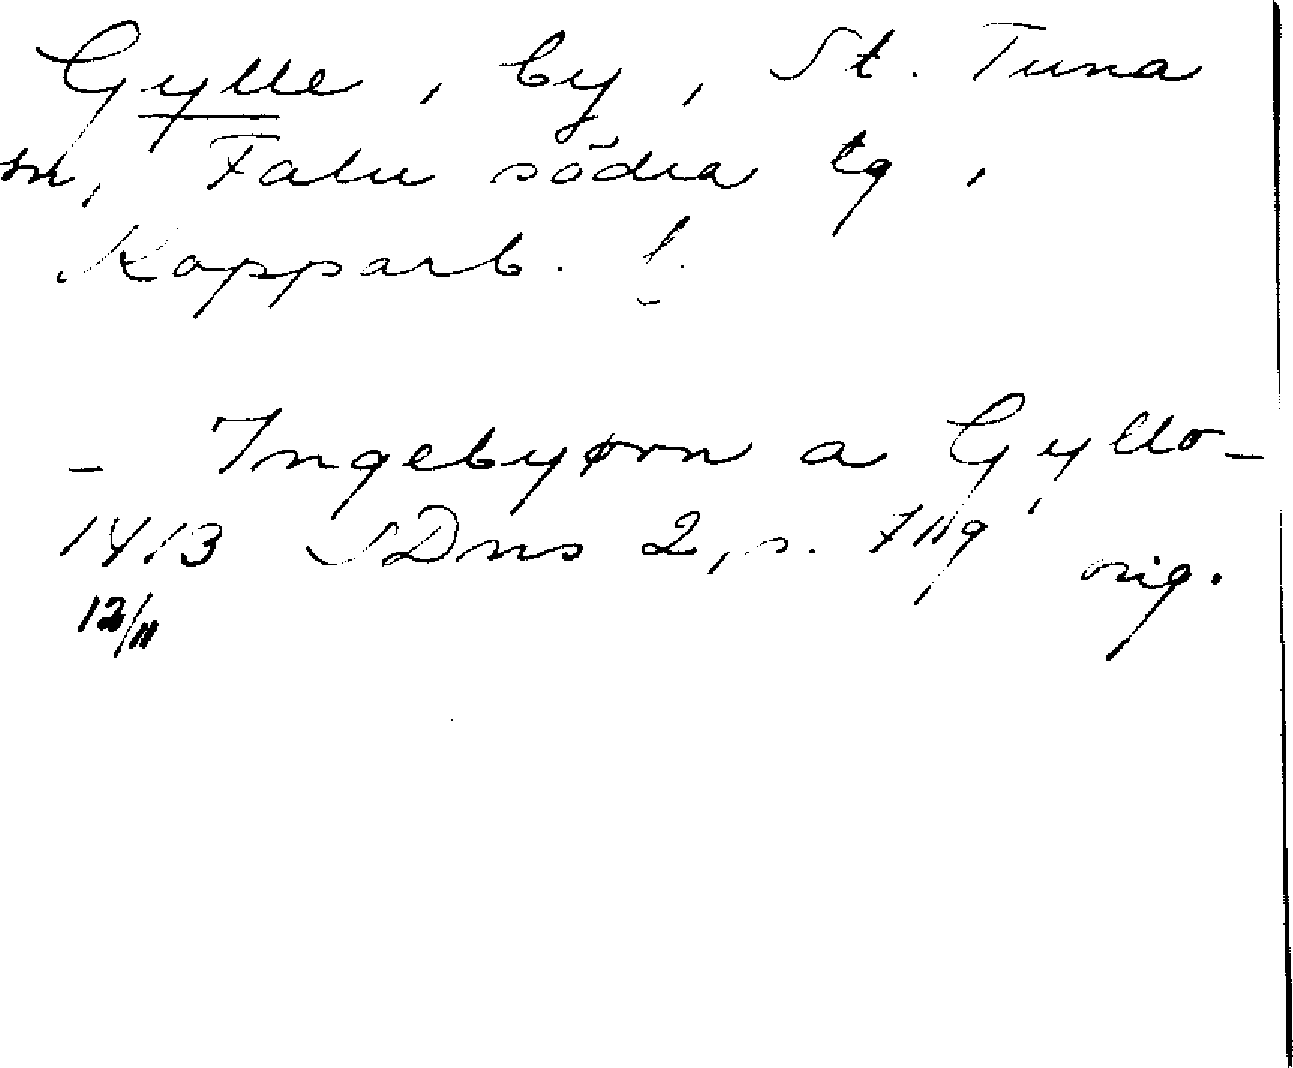 Gylle, by, St. Tuna
sn, Falu södra tg,
Kopparb. l.
- Ingebyørn a Gyllo -
1413 SDns 2, s. 719 orig.
12/11